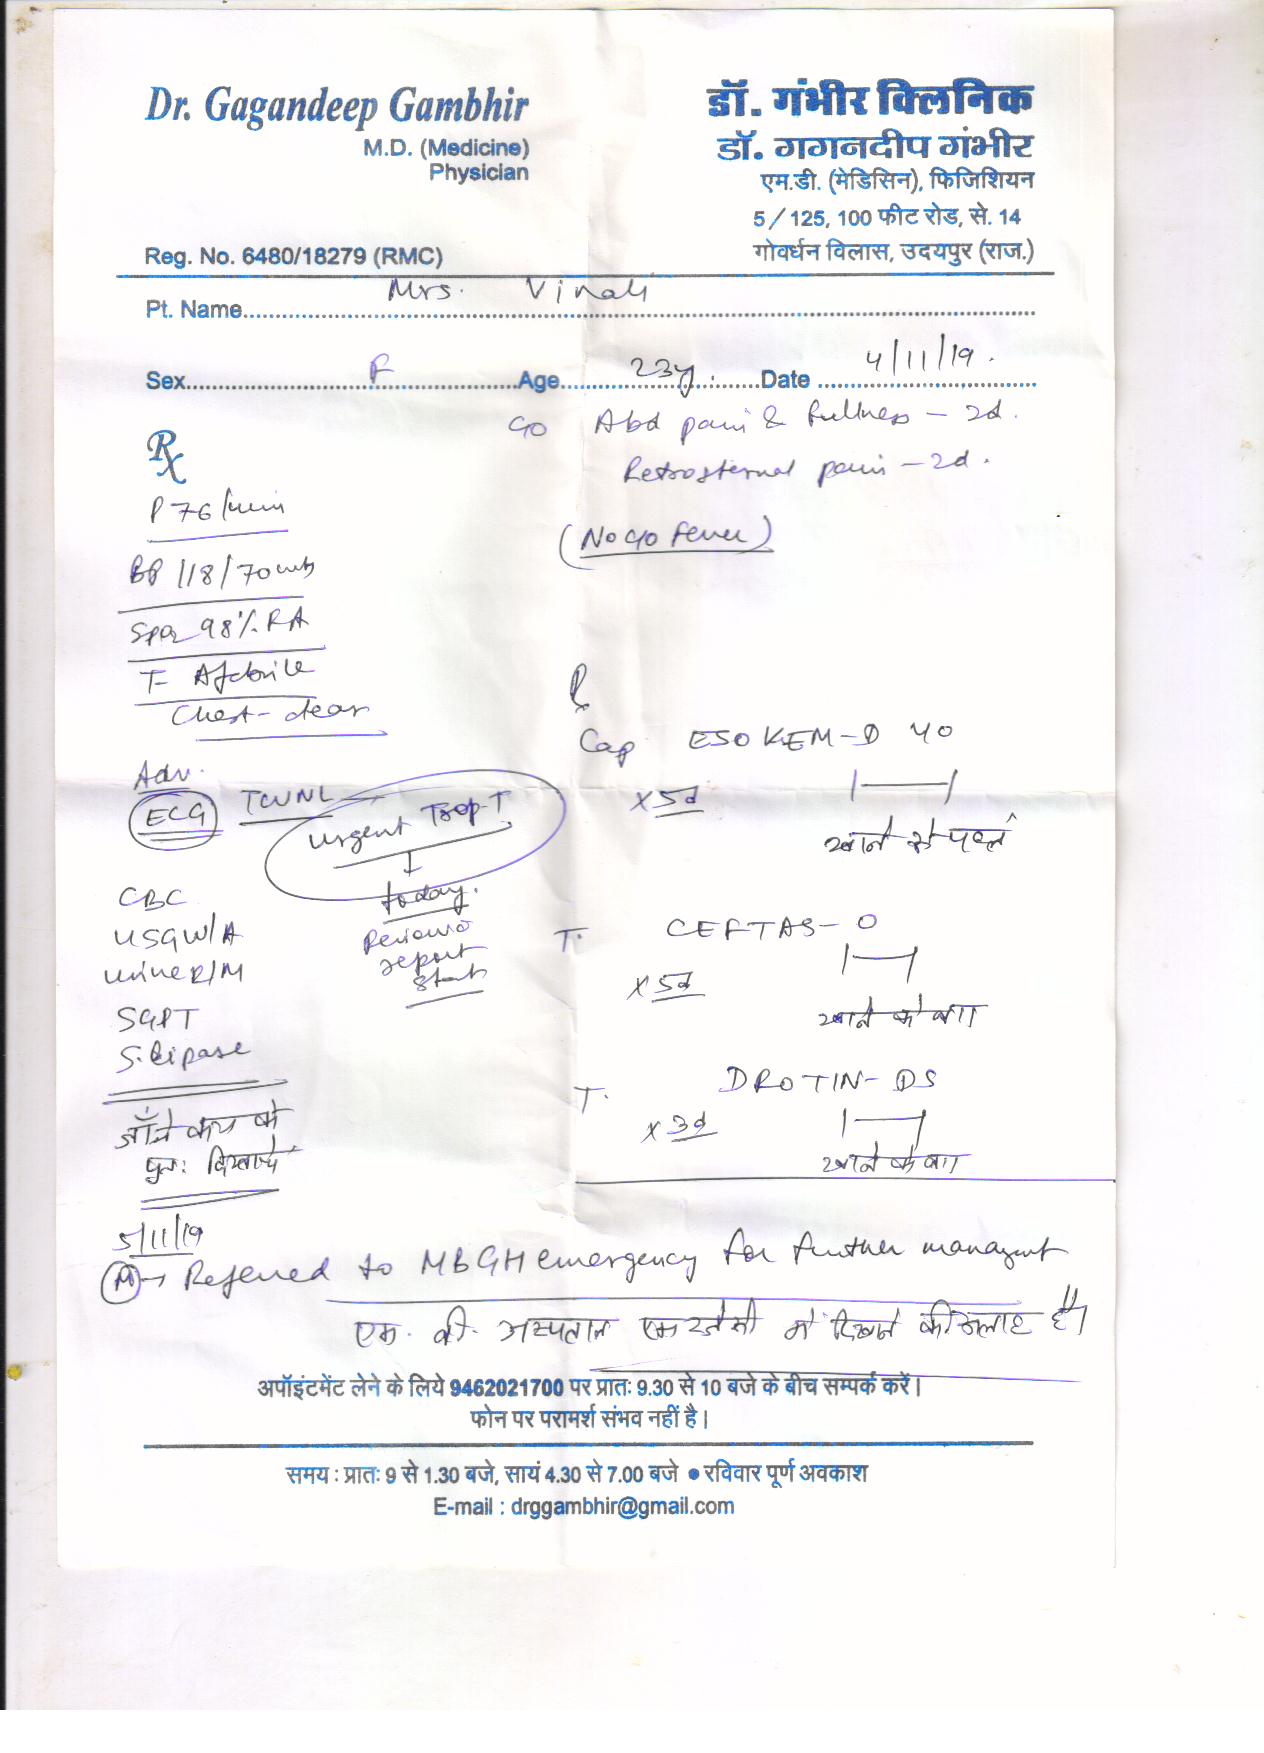 Dr. Gagandeep Gambhir
M.D. (Medicine)
Physician
Reg. No. 6480/18279 (RMC)
डॉ. गंभीर क्लिनिक
डॉ. गगनदीप गंभीर
एम.डी. (मेडिसिन), फिजिशियन
5/125, 100 फीट रोड, से. 14
गोवर्धन विलास, उदयपुर (राज.)
Pt. Name Mrs.
Sex F Age 23y Date 4/11/19.
C/O Abd pain & fullness - 2d.
Retrosternal pain - 2d.
(No C/O Fever)
Rx
P 76/min
BP 118/70
SpO2 98% RA
T- Afebrile
Chest- clear
Adv.
ECG
Urgent Trop-T
today.
report
CBC
USG W/A
Urine R/M
SGPT
S. Lipase
पुनः दिखायें
Rx
Cap ESOKEM-D 40
x 5d
खाने से पहले
T. CEFTAS-O
x 5d
खाने के बाद
T. DROTIN-DS
x 3d
खाने के बाद
5/11/19
Referred to MBGH emergency for further managmt
एम. बी. अस्पताल इमरजेंसी में दिखाने की सलाह है।
अपॉइंटमेंट लेने के लिये 9462021700 पर प्रातः 9.30 से 10 बजे के बीच सम्पर्क करें।
फोन पर परामर्श संभव नहीं है।
समय : प्रातः 9 से 1.30 बजे, सायं 4.30 से 7.00 बजे ● रविवार पूर्ण अवकाश
E-mail : drggambhir@gmail.com